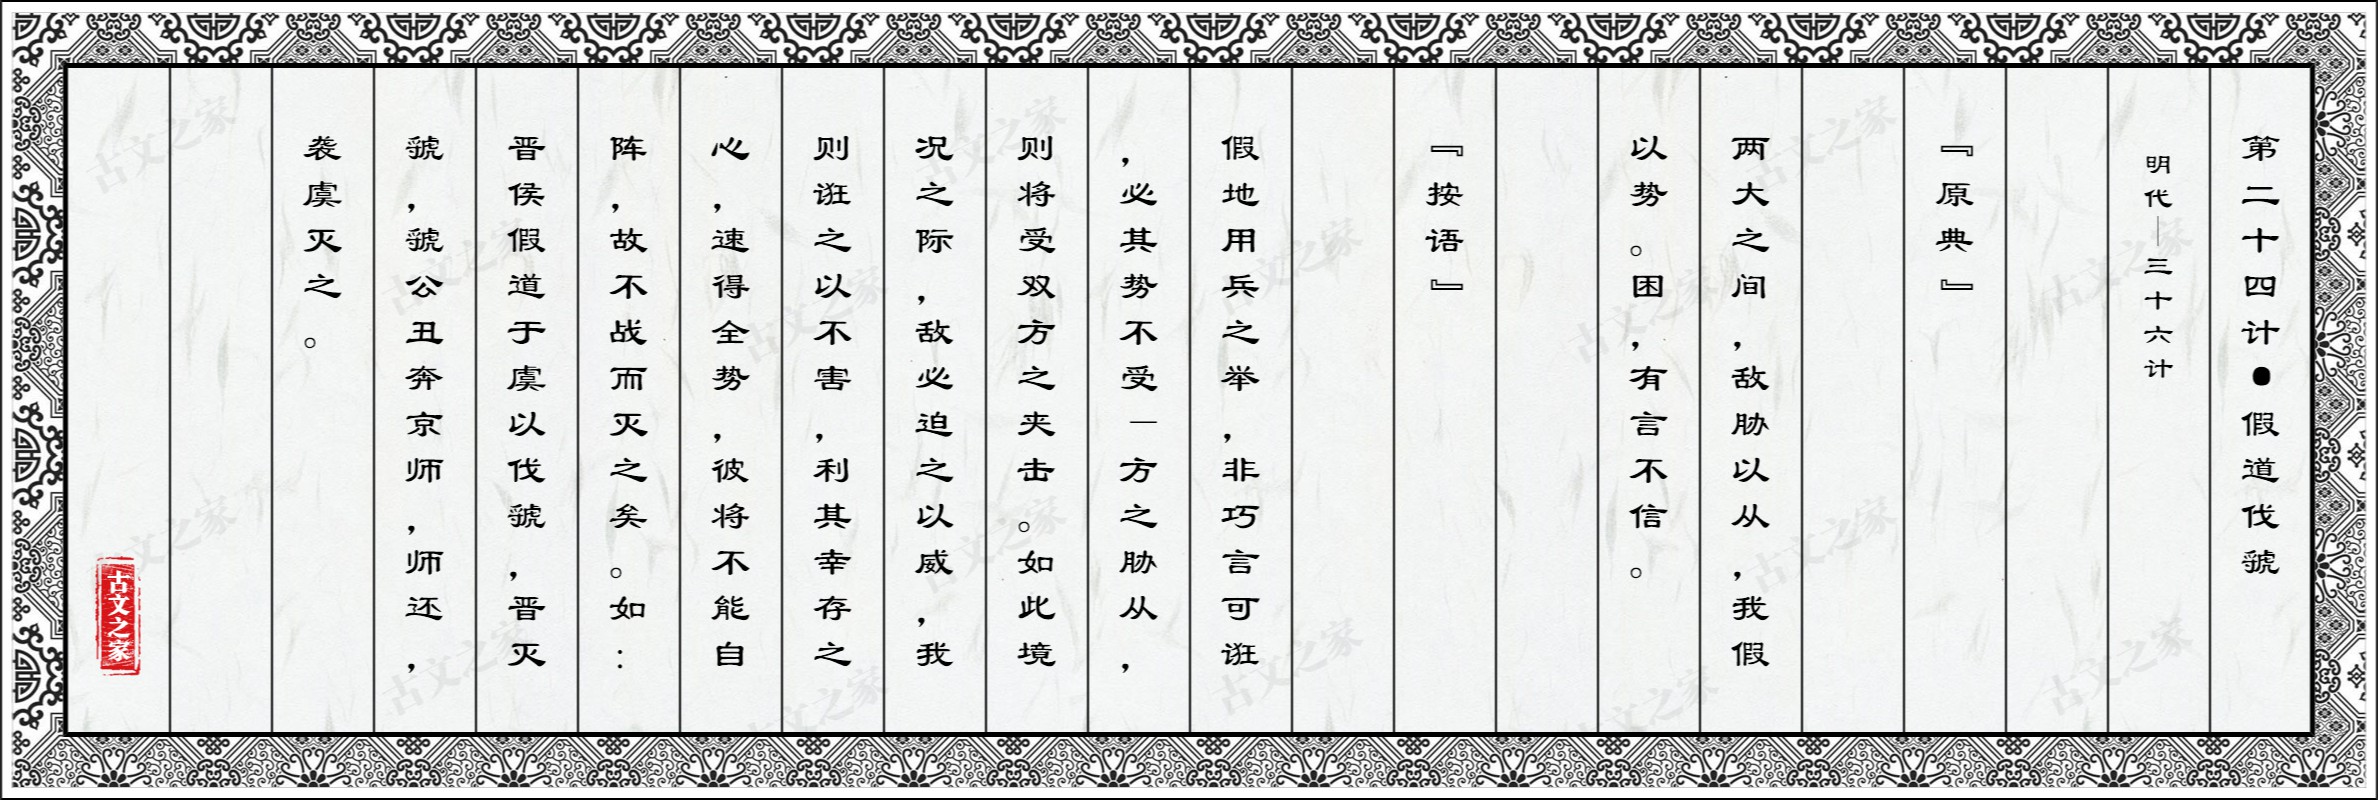 第二十四计●假道伐虢
明代—三十六计
『原典』
两大之间，敌胁以从，我假
以势。困，有言不信。
『按语』
假地用兵之举，非巧言可诳
，必其势不受一方之胁从，
则将受双方之夹击。如此境
况之际，敌必迫之以威，我
则诳之以不害，利其幸存之
心，速得全势，彼将不能自
阵，故不战而灭之矣。如：
晋侯假道于虞以伐虢，晋灭
虢，虢公丑奔京师，师还，
袭虞灭之。
古文之家